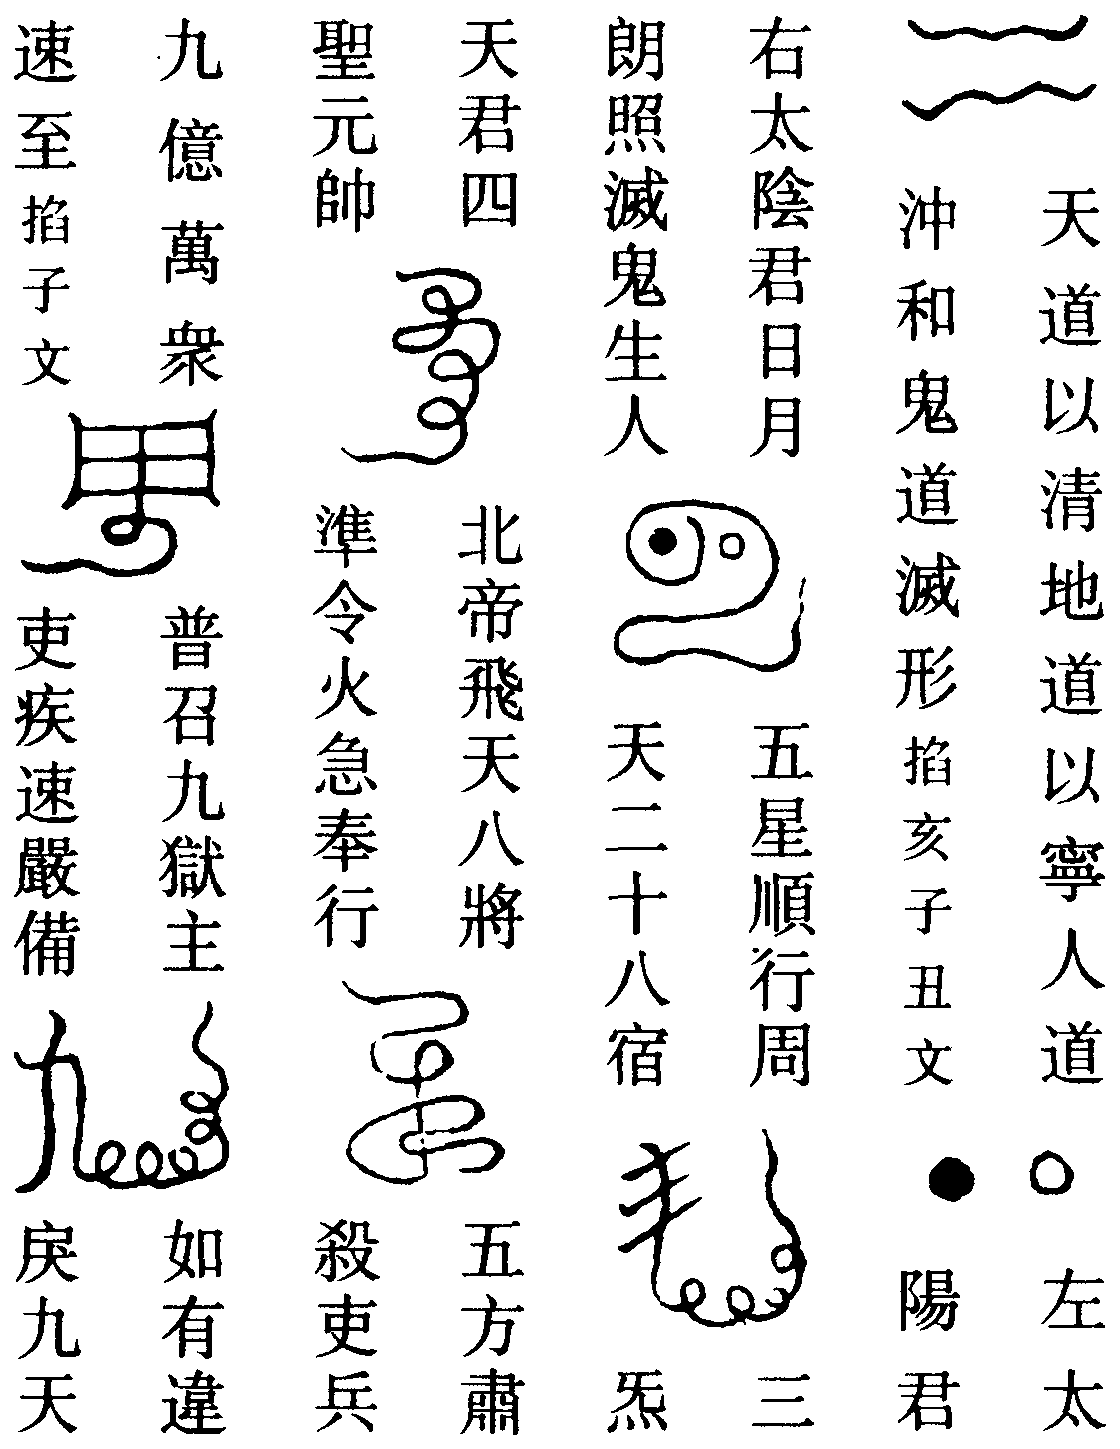 天道以清地道以寧人道
沖和鬼道滅形掐亥子丑文
左太
陽君
右太陰君日月
朗照滅鬼生人
五星順行周
天二十八宿
三
炁
天君四
聖元帥
北帝飛天八將
準令火急奉行
五方肅
殺吏兵
九億萬衆
速至掐子文
普召九獄主
吏疾速嚴備
如有違
戾九天